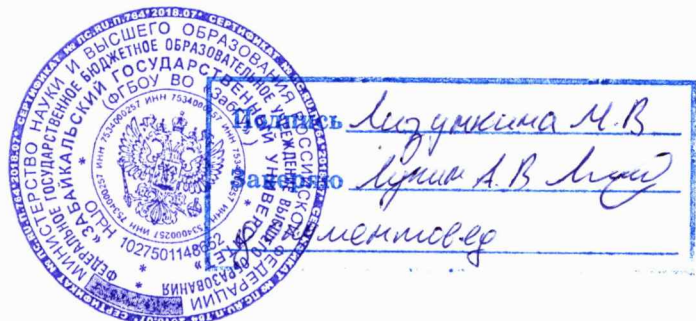 СЕРТИФИКАТ № ПС.RU.П.764*2018.07*
МИНИСТЕРСТВО НАУКИ И ВЫСШЕГО ОБРАЗОВАНИЯ РОССИЙСКОЙ ФЕДЕРАЦИИ
ФЕДЕРАЛЬНОЕ ГОСУДАРСТВЕННОЕ БЮДЖЕТНОЕ ОБРАЗОВАТЕЛЬНОЕ УЧРЕЖДЕНИЕ ВЫСШЕГО ОБРАЗОВАНИЯ
«ЗАБАЙКАЛЬСКИЙ ГОСУДАРСТВЕННЫЙ УНИВЕРСИТЕТ»
(ФГБОУ ВО «ЗабГУ»)
ИНН 7534000257
Подпись Лизункина М.В
Заверяю Лукин А.В
документовед